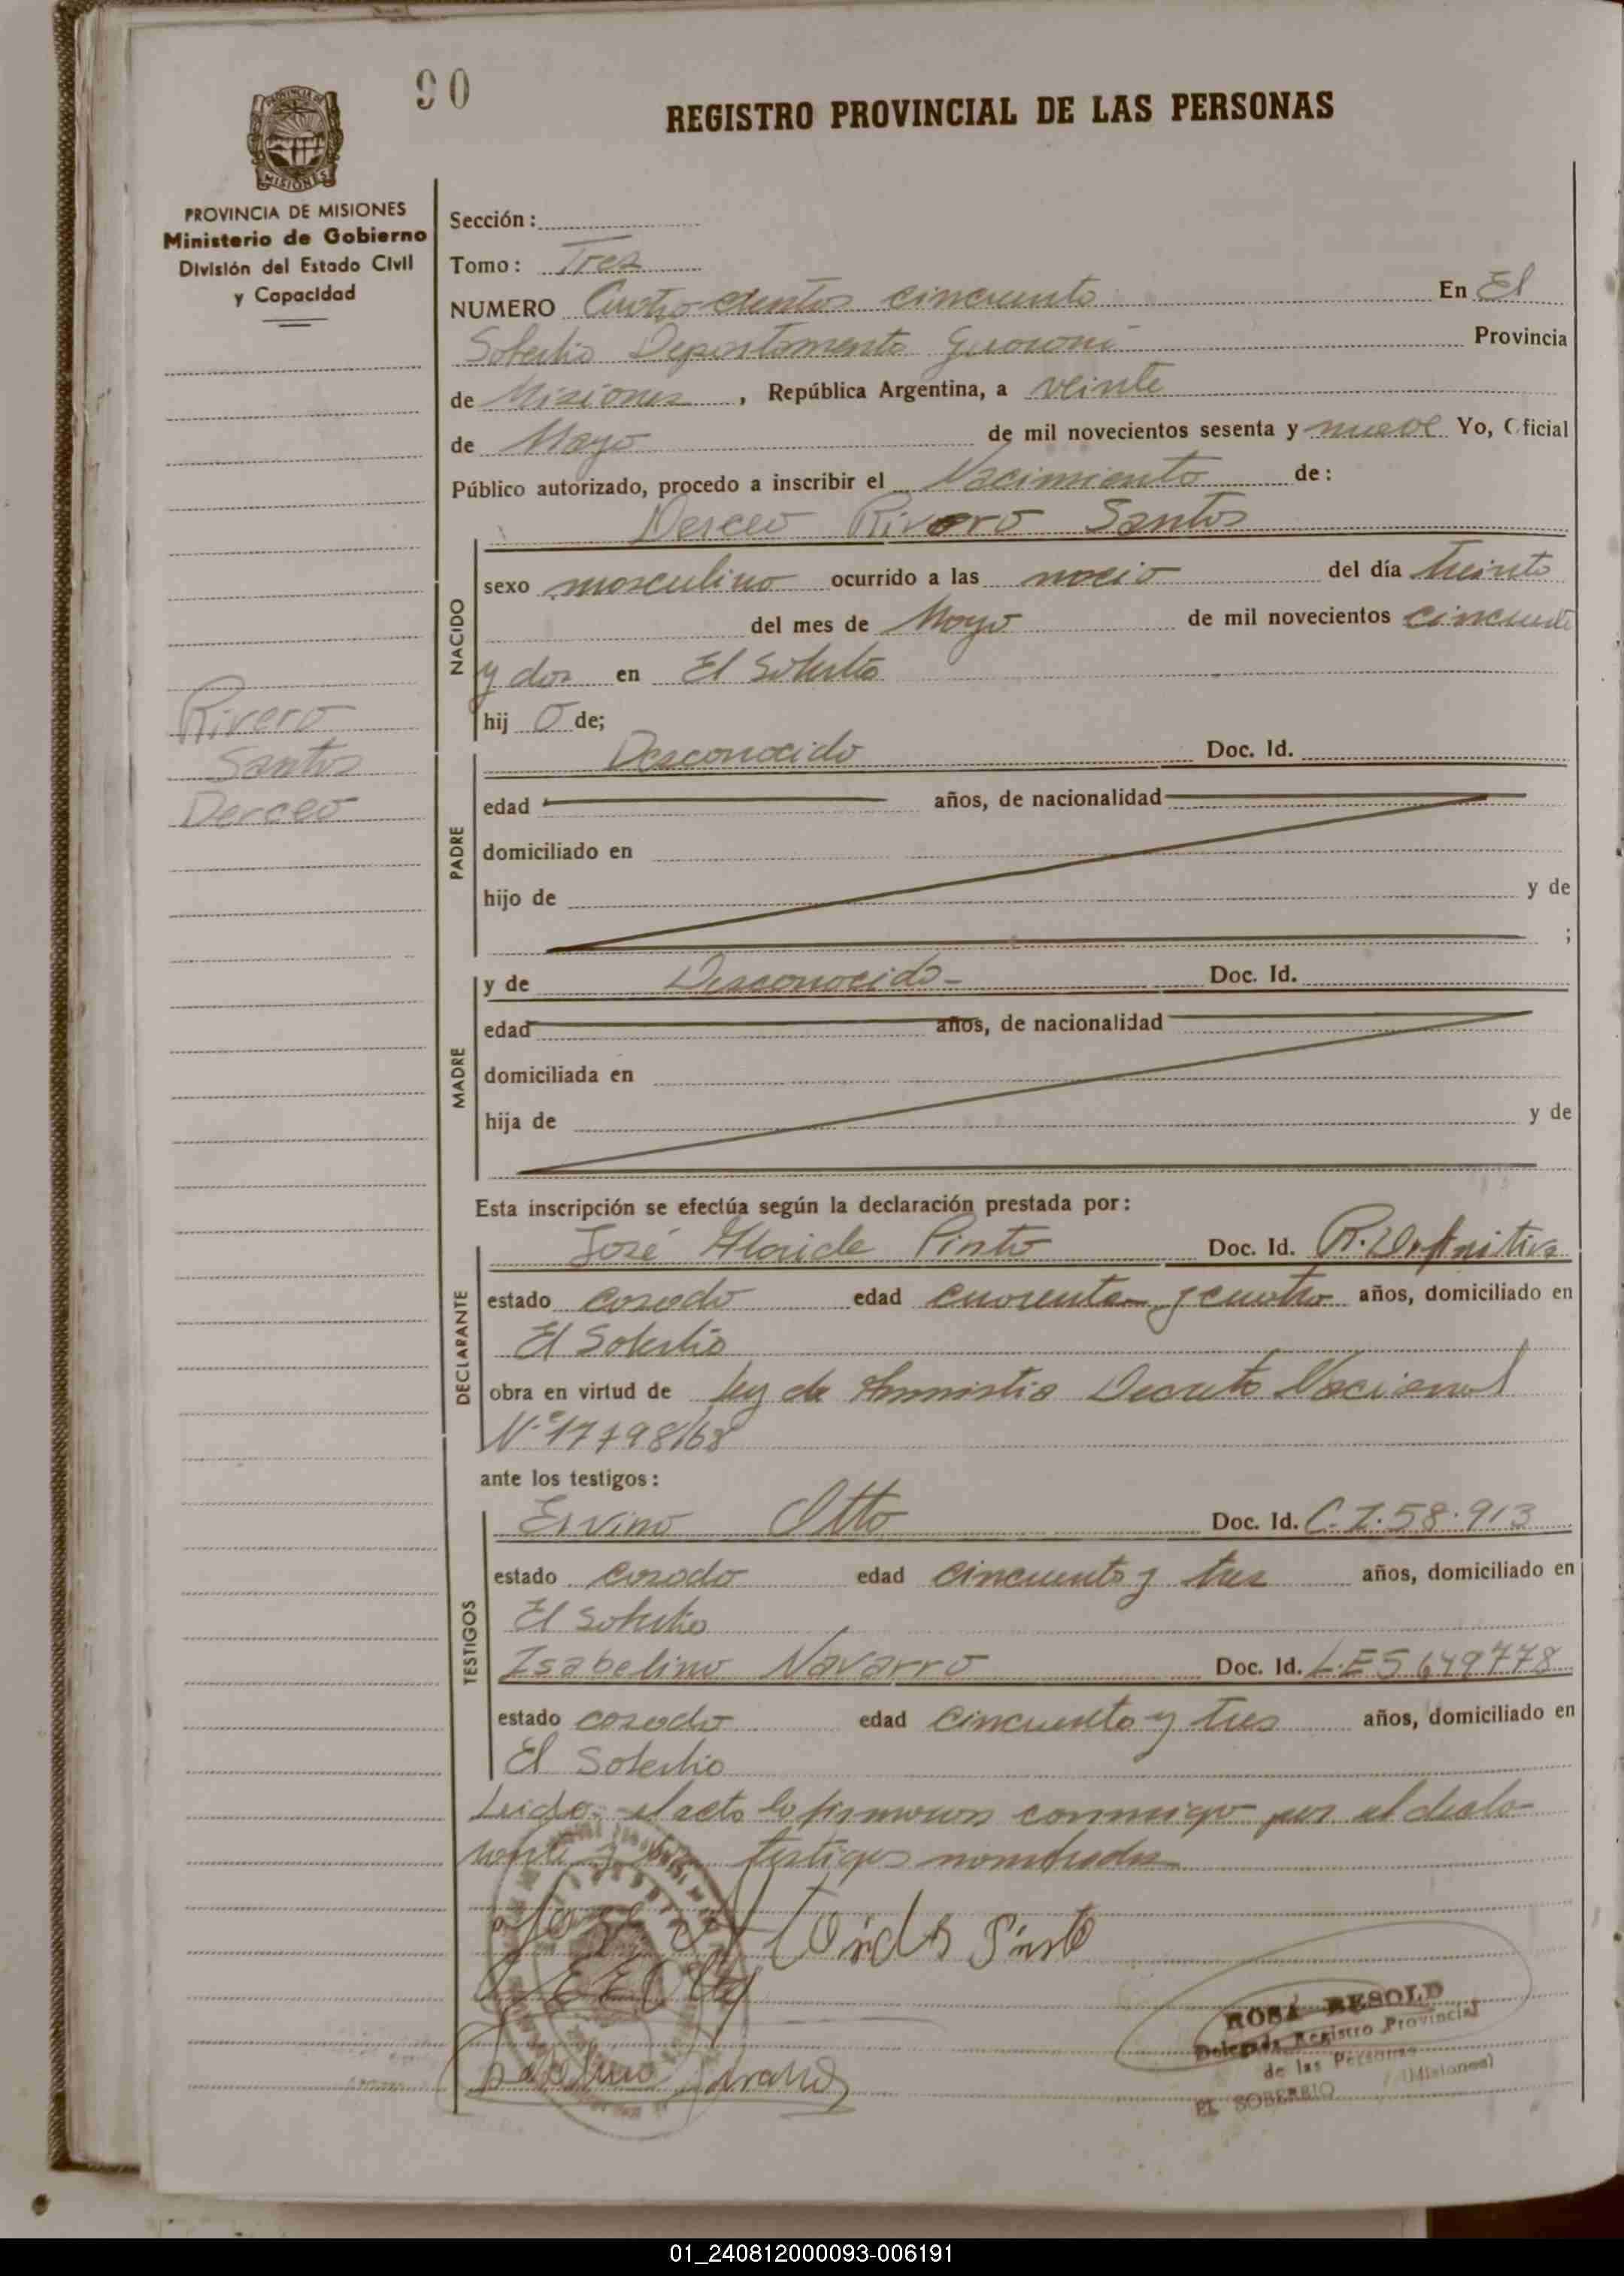 90
REGISTRO PROVINCIAL DE LAS PERSONAS
PROVINCIA DE MISIONES
Ministerio de Gobierno
División del Estado Civil
y Capacidad
Sección:
Tomo: Tres
NUMERO Cuatrocientos cincuenta En El
Soberbio Departamento Guaraní Provincia
de Misiones, República Argentina, a veinte
de Mayo de mil novecientos sesenta y nueve Yo, Oficial
Público autorizado, procedo a inscribir el Nacimiento de:
Derceo Rivero Santos
NACIDO
sexo masculino ocurrido a las del día treinta
del mes de Mayo de mil novecientos cincuenta
y dos en El Soberbio
hijo de;
Rivero
Santos
Derceo
PADRE
Desconocido Doc. Id.
edad años, de nacionalidad
domiciliado en
hijo de y de
;
MADRE
y de Desconocido- Doc. Id.
edad años, de nacionalidad
domiciliada en
hija de y de
Esta inscripción se efectúa según la declaración prestada por:
DECLARANTE
José Pinto Doc. Id. R. Definitiva
estado casado edad cuarenta y cuatro años, domiciliado en
El Soberbio
obra en virtud de Ley de Amnistia Decreto Nacional
N° 17798/68
ante los testigos:
TESTIGOS
Ervino Otto Doc. Id. C.I.58.913
estado casado edad cincuenta y tres años, domiciliado en
El Soberbio
Isabelino Navarro Doc. Id. L.E 5649778
estado casado edad cincuenta y tres años, domiciliado en
El Soberbio
Leida el acta la firmaron conmigo por el decla-
rante y los testigos nombrados
ROSA BESOLD
Delegada Registro Provincial
de las Personas
EL SOBERBIO (Misiones)
01_240812000093-006191